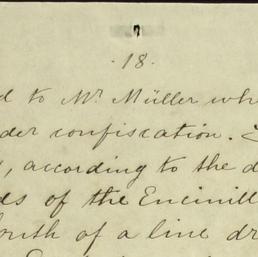 7
· 18 ·
d to Mr Müller wh
der confiscation.
, according to the d
ds of the Encinill
South of a line dr